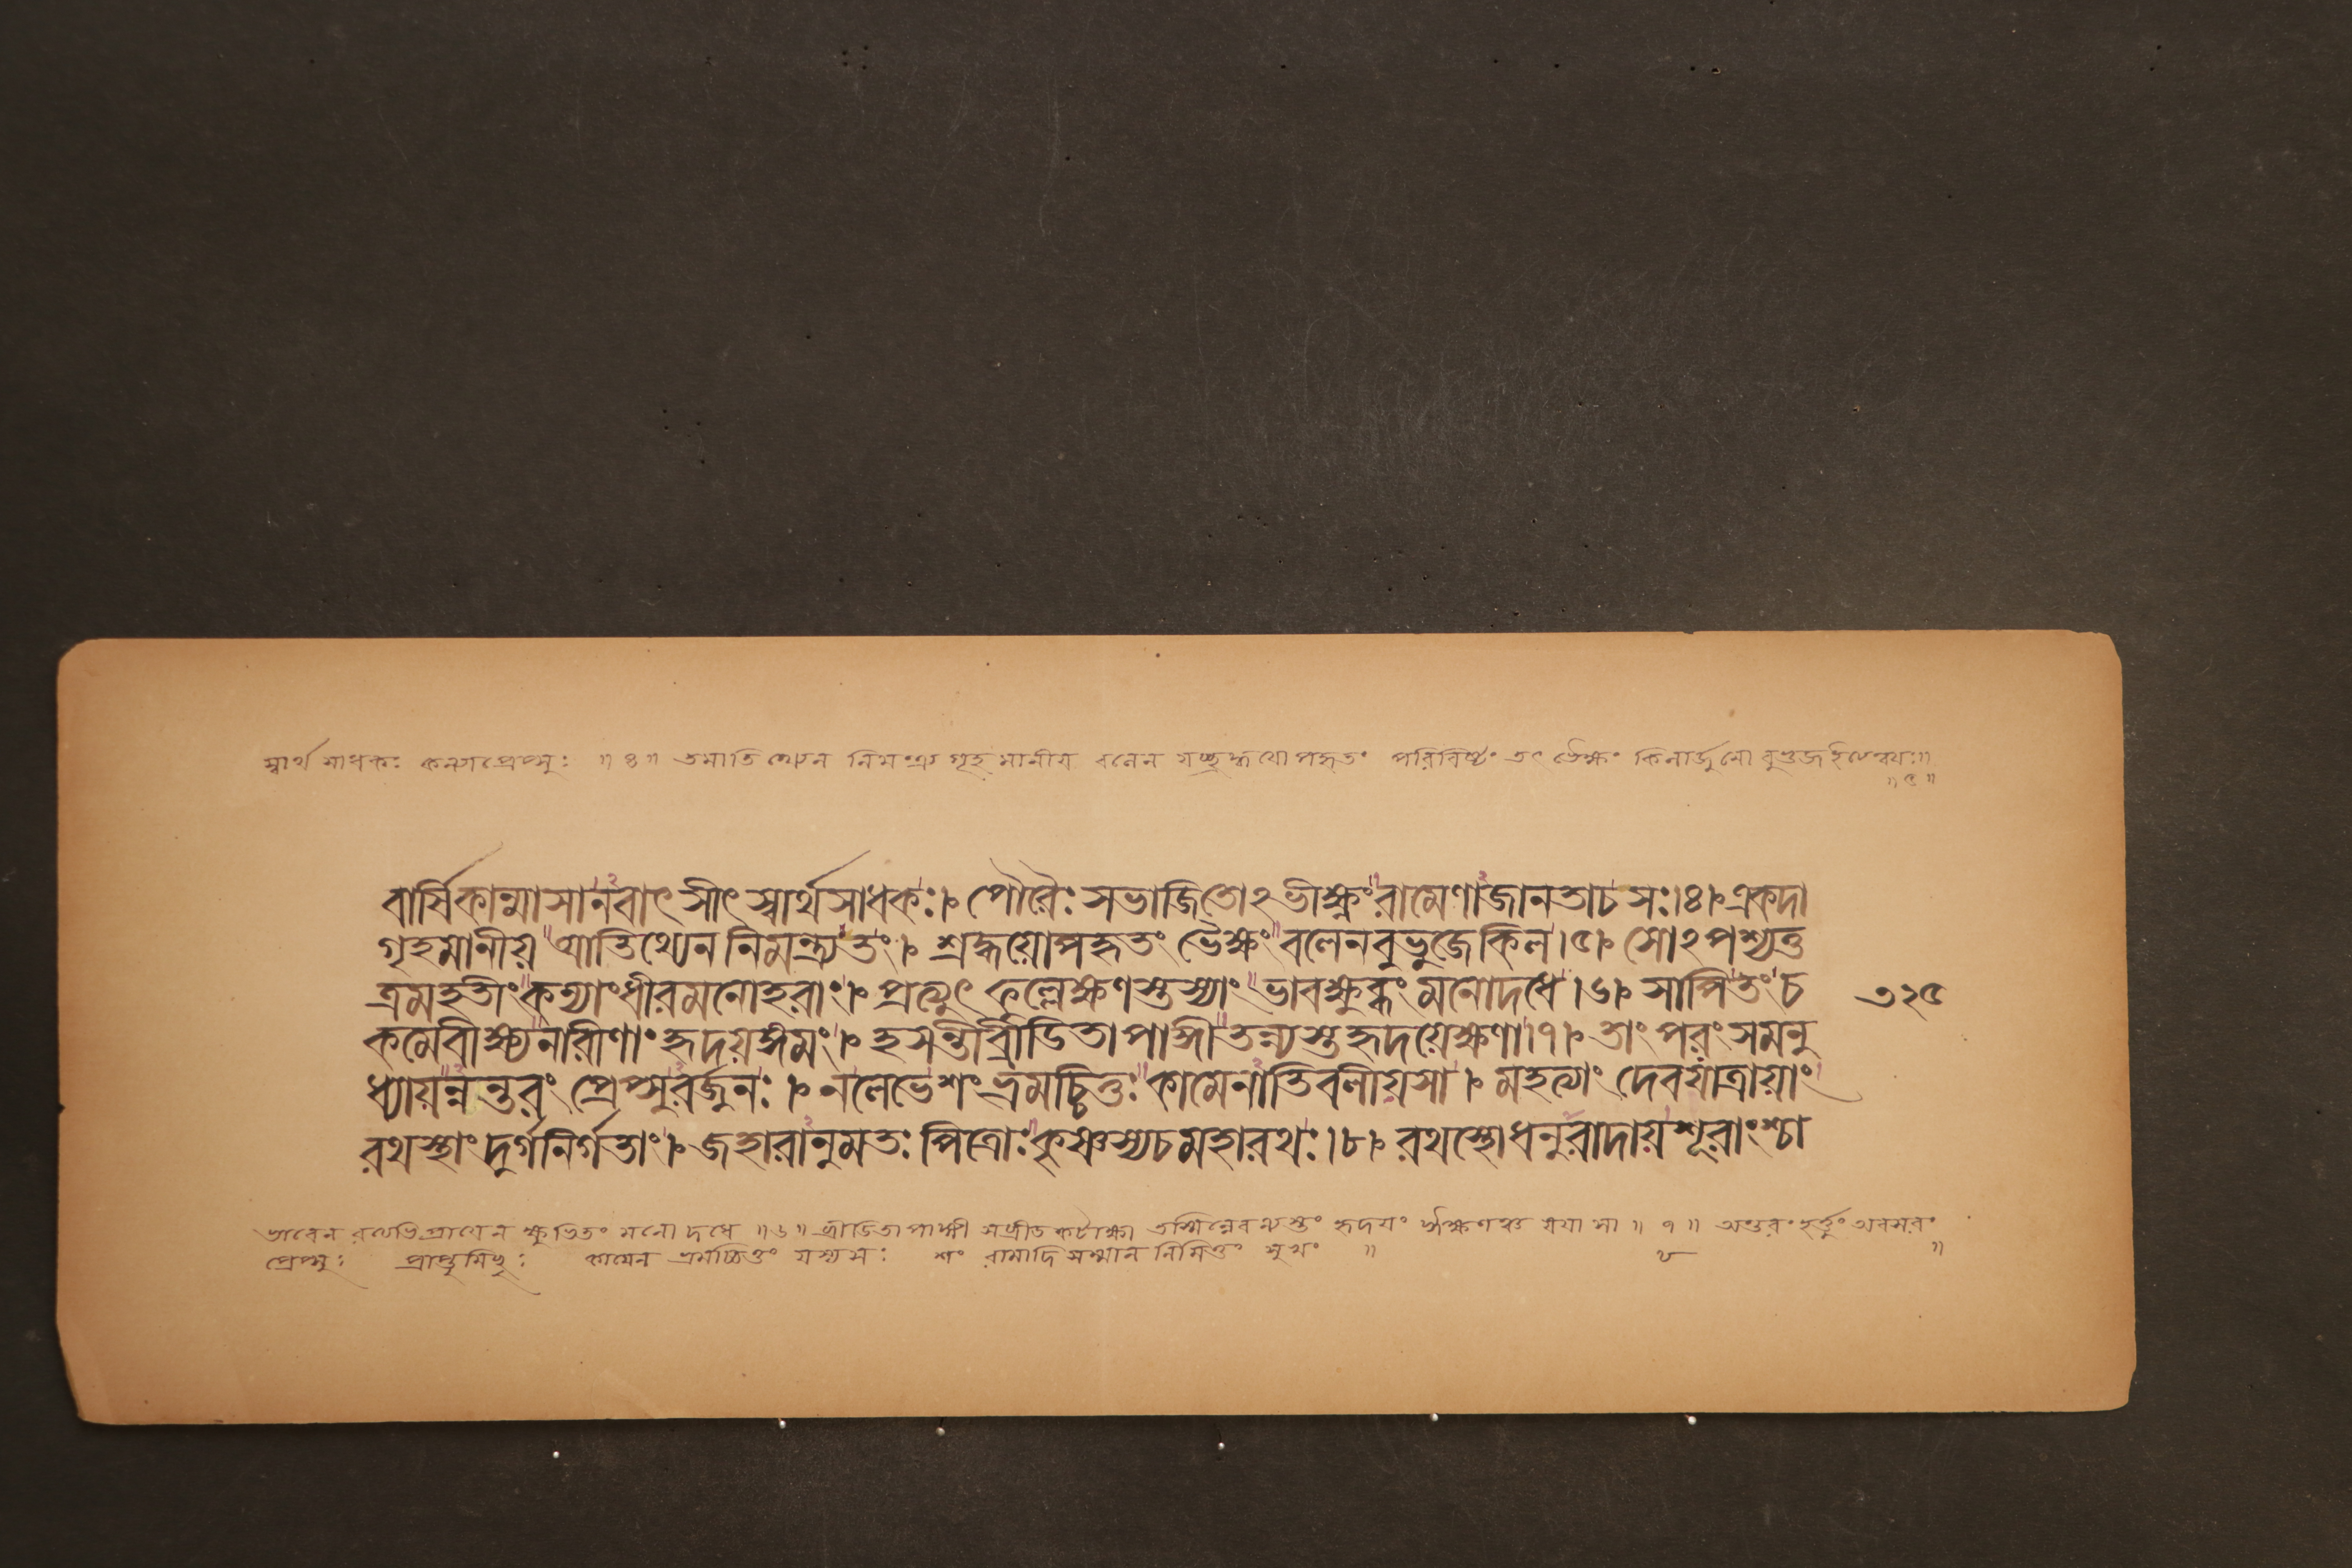 স্বার্থসাধকঃ কন্যাপ্রেপ্সুঃ ॥৪॥ তমাতিথ্যেন নিমংত্র্য গৃহমানীয় বলেন যচ্ছ্রদ্ধয়োপহৃতং পরিবিষ্টং তৎ ভৈক্ষং কিলার্জুনো বুভুজ
॥৫॥
বার্ষিকান্মাসানবাৎসীৎ স্বার্থসাধকঃ। পৌরৈঃ সভাজিতোঽভীক্ষ্ণং রামেণাজানতাচসঃ।৪। একদা
গৃহমানীয় আতিথ্যেন নিমন্ত্র্য তং। শ্রদ্ধয়োপহৃতং ভৈক্ষং বলেনবুভুজেকিল।৫। সোঽপশ্যত্ত
ত্রমহতীং কন্যাংধীরমনোহরাং। প্রত্যুৎফল্লেক্ষণস্তস্যাং ভাবক্ষুব্ধং মনোদধে।৬। সাপিতং চ
কমেবীক্ষ্যনারীণাং হৃদয়ঙ্গমং। হসন্তীব্রীডিতাপাঙ্গী তন্ন্যস্তহৃদয়েক্ষণা।৭। তাং পরং সমনু
ধ্যায়ন্নন্তরং প্রেপ্সুরর্জুনঃ। নলেভেশং ভ্রমচ্চিত্তঃ কামেনাতিবলীয়সা। মহত্যাং দেবযাত্রায়াং
রথস্থাং দুর্গনির্গতাং। জহারানুমতঃ পিত্রোঃ কৃষ্ণস্যচমহারথঃ।৮। রথস্থোধনুরাদায় শূরাংশ্চা
৩২৫
ভাবেন রত্যভিপ্রায়েন ক্ষুভিতং মনো দধে ॥৬॥ ব্রীডিতাপাঙ্গী সব্রীডকটাক্ষা তস্মিন্নেব ন্যস্তং হৃদয়ং ঈক্ষণঞ্চ যয়া সা ॥৭॥ অন্তরং হর্ত্তুং অবসরং
প্রেপ্সুঃ প্রাপ্তুমিচ্ছুঃ কামেন ভ্রমচ্চিত্তং যস্য সঃ শং রামাদি সম্মান নিমিত্তং সুখং ॥ ৮ ॥